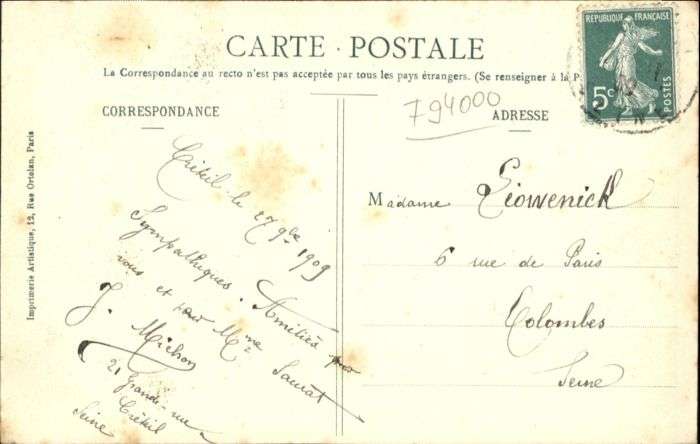 CARTE POSTALE
La Correspondance au recto n'est pas acceptée par tous les pays étrangers. (Se renseigner à la P
RÉPUBLIQUE FRANÇAISE
5c
POSTES
794000
CORRESPONDANCE
ADRESSE
Imprimerie Artistique, 12, Rue Ortolan, Paris
Créteil le 27 9bre 1909
Sympathiques Amitiés pour
vous et pour Mme
J. Michon
21 Grande-rue
Créteil
Seine
Madame
6 rue de Paris
Colombes
Seine